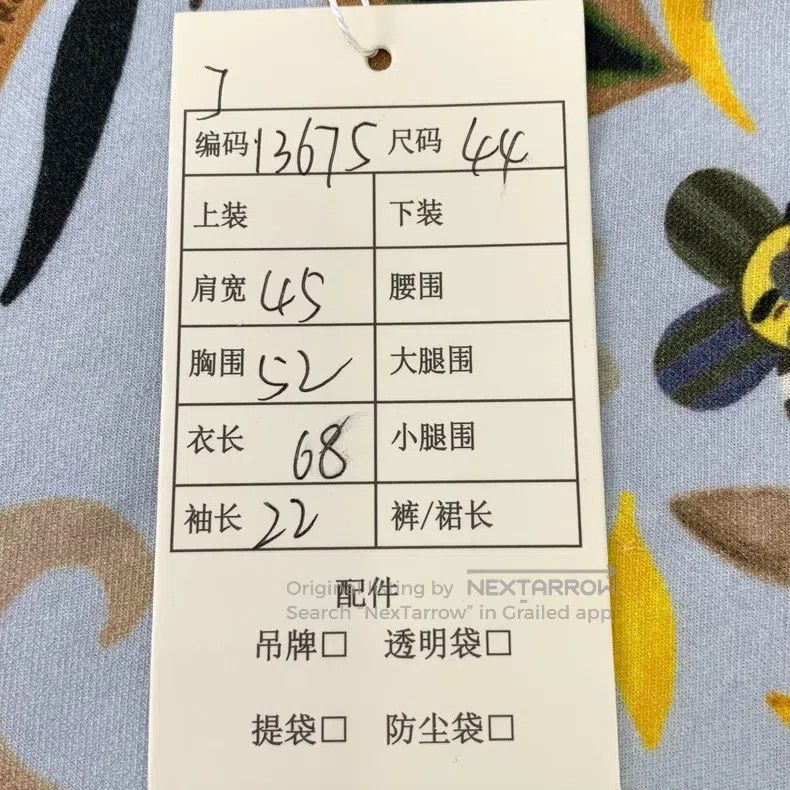 编码 13675 尺码 44
上装 下装
肩宽 45 腰围
胸围 52 大腿围
衣长 68 小腿围
袖长 22 裤/裙长
配件
Original listing by NEXTARROW
Search "NexTarrow" in Grailed app
吊牌□ 透明袋□
提袋□ 防尘袋□